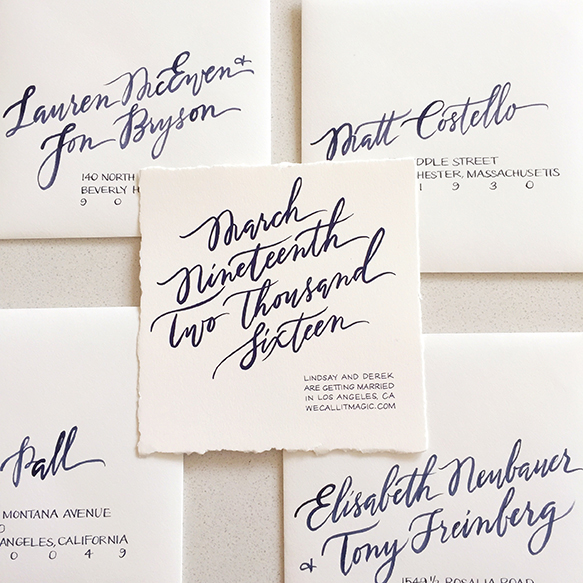 Lauren McEwen &
Jon Bryson
140 NORTH
BEVERLY H
9 0
Matt Costello
PPLE STREET
CHESTER, MASSACHUSETTS
1 9 3 0
March
Nineteenth
Two Thousand
Sixteen
LINDSAY AND DEREK
ARE GETTING MARRIED
IN LOS ANGELES, CA
WECALLITMAGIC.COM
Ball
MONTANA AVENUE
ANGELES, CALIFORNIA
0 0 4 9
Elisabeth Neubauer
& Tony Freinberg
1549 1/2 ROSALIA ROAD